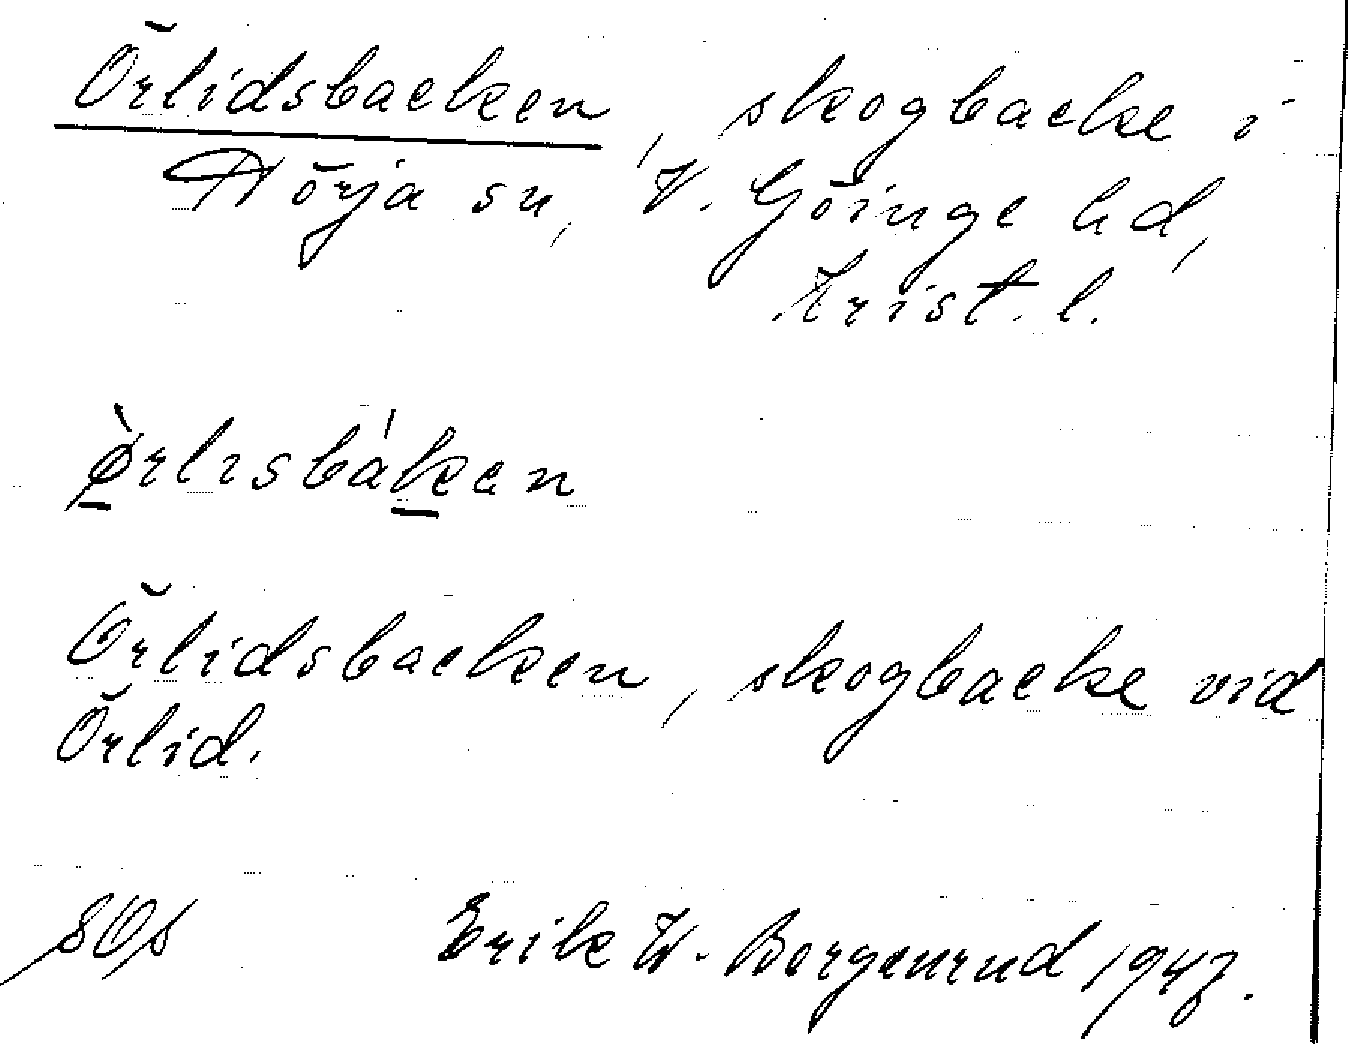 Örlidsbacken, skogbacke i
Hörja sn, V. Göinge hd,
Krist. l.
ø̀rlısbáken
Örlidsbacken, skogbacke vid
Örlid.
Erik W. Borgenrud 1947.